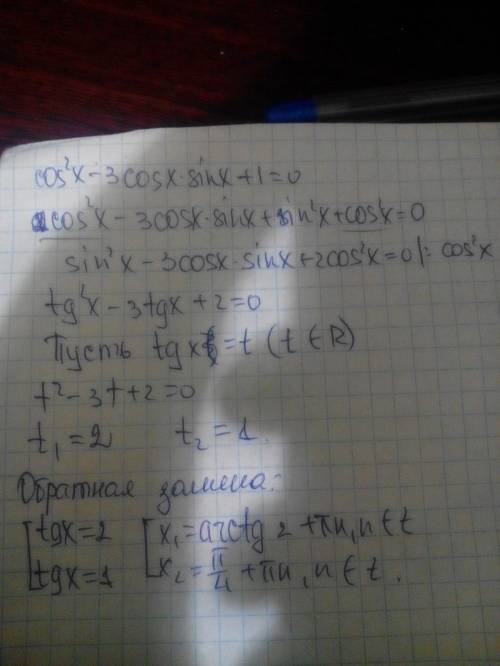 cos²x - 3cosx·sinx + 1 = 0
cos²x - 3cosx·sinx + sin²x + cos²x = 0
sin²x - 3cosx·sinx + 2cos²x = 0 |: cos²x
tg²x - 3tgx + 2 = 0
Пусть tgx = t (t ∈ R)
t² - 3t + 2 = 0
t₁ = 2 t₂ = 1.
Обратная замена:
[tgx = 2 [x₁ = arctg 2 + πn, n ∈ t
[tgx = 1 [x₂ = π/4 + πn, n ∈ t.